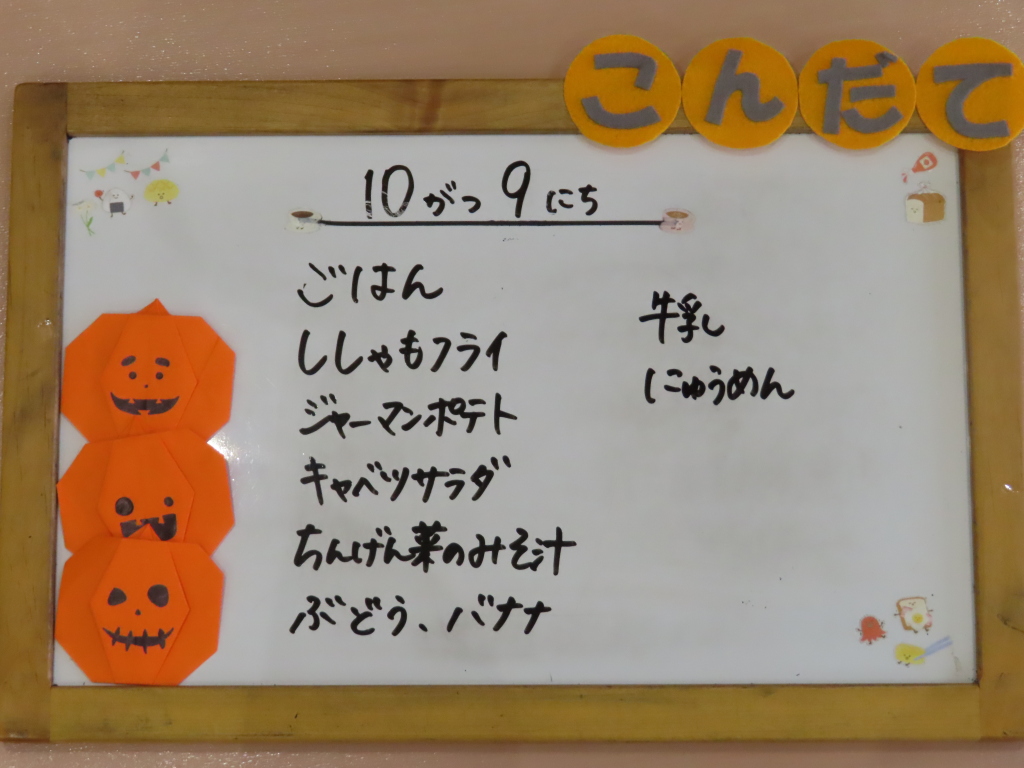 こんだて
10がつ9にち
ごはん
ししゃもフライ
ジャーマンポテト
キャベツサラダ
ちんげん菜のみそ汁
ぶどう、バナナ
牛乳
にゅうめん